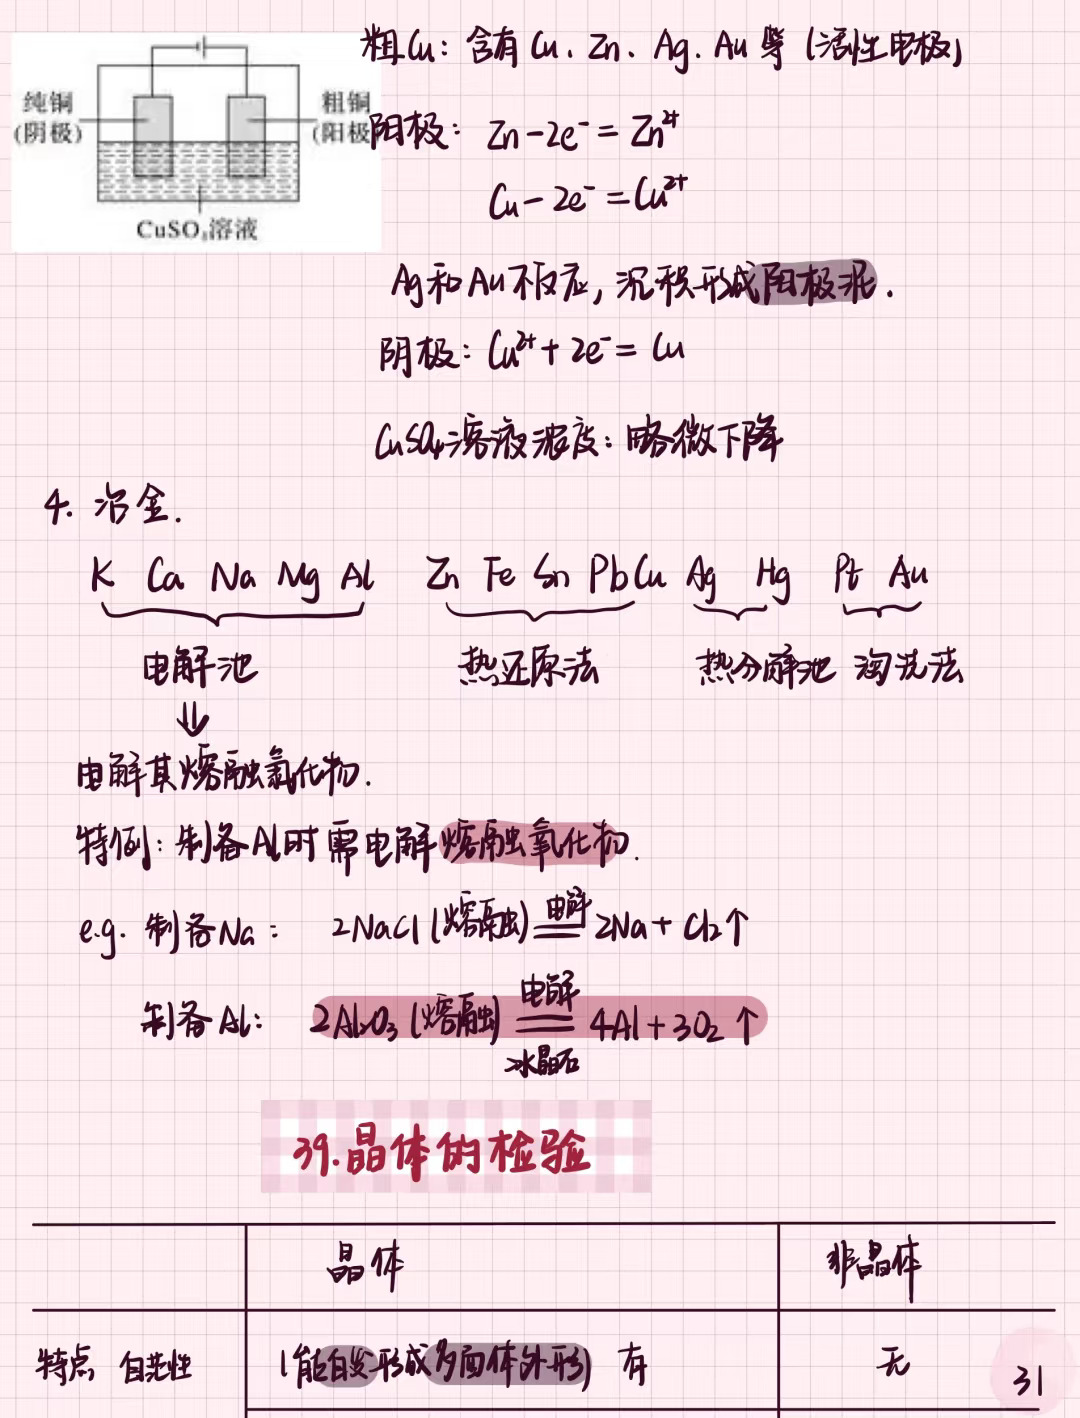 粗Cu：含有Cu、Zn、Ag、Au等（活性电极）
纯铜
(阴极)
粗铜
(阳极
CuSO₄溶液
阳极：Zn-2e⁻=Zn²⁺
Cu-2e⁻=Cu²⁺
Ag和Au不反应，沉积形成阳极泥.
阴极：Cu²⁺+2e⁻=Cu
CuSO₄溶液浓度：略微下降
4. 冶金.
K Ca Na Mg Al Zn Fe Sn Pb Cu Ag Hg Pt Au
电解池 热还原法 热分解池 淘洗法
⇓
电解其熔融氯化物.
特例：制备Al时需电解熔融氧化物.
e.g. 制备Na： 2NaCl(熔融) 电解 2Na+Cl₂↑
制备Al： 2Al₂O₃(熔融) 电解 冰晶石 4Al+3O₂↑
39.晶体的检验
晶体 非晶体
特点 自范性 (能自发形成多面体外形) 有 无
31